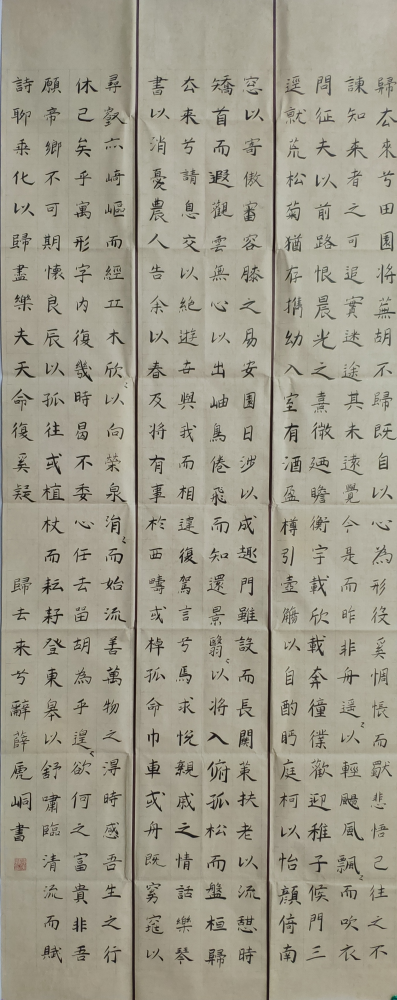 歸去來兮田園將蕪胡不歸既自以心為形役奚惆悵而獨悲悟已往之不
諫知来者之可追實迷途其未遠覺今是而昨非舟遥〻以輕颺風飄〻而吹衣
問征夫以前路恨晨光之熹微廼瞻衡宇載欣載奔僮僕歡迎稚子候門三
逕就荒松菊猶存携幼入室有酒盈樽引壺觴以自酌眄庭柯以怡顏倚南
窓以寄傲審容膝之易安園日涉以成趣門雖設而長關策扶老以流憩時
矯首而遐觀雲無心以出岫鳥倦飛而知還景翳〻以將入俯孤松而盤桓歸
去來兮請息交以絶遊世與我而相違復駕言兮焉求悅親戚之情話樂琴
書以消憂農人告余以春及將有事於西疇或棹孤命巾車或舟既窈窕以
尋壑亦崎嶇而經丘木欣〻以向榮泉涓〻而始流善萬物之得時感吾生之行
休已矣乎寓形宇内復幾時曷不委心任去留胡為乎遑〻欲何之富貴非吾
願帝鄉不可期懷良辰以孤往或植杖而耘耔登東皋以舒嘯臨清流而賦
詩聊乘化以歸盡樂夫天命復奚疑 歸去來兮辭薛虎峒書